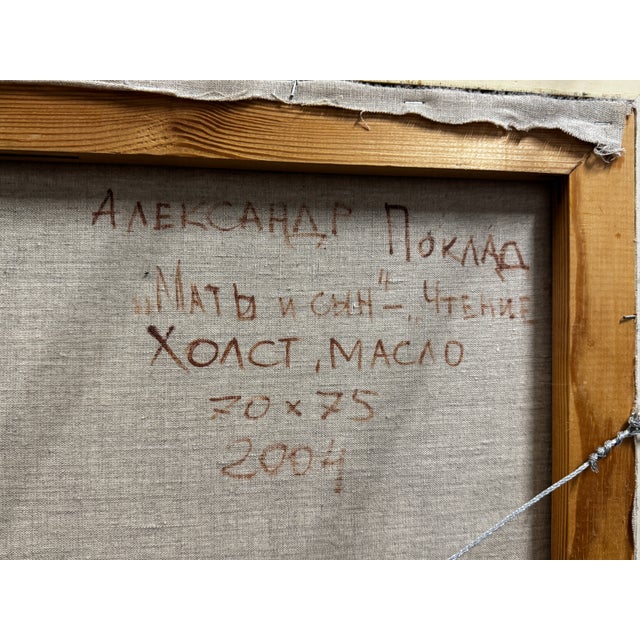 АЛЕКСАНДР ПОКЛАД
„МАТЬ И СЫН" –, ЧТЕНИЕ
ХОЛСТ, МАСЛО
70 х 75
2004